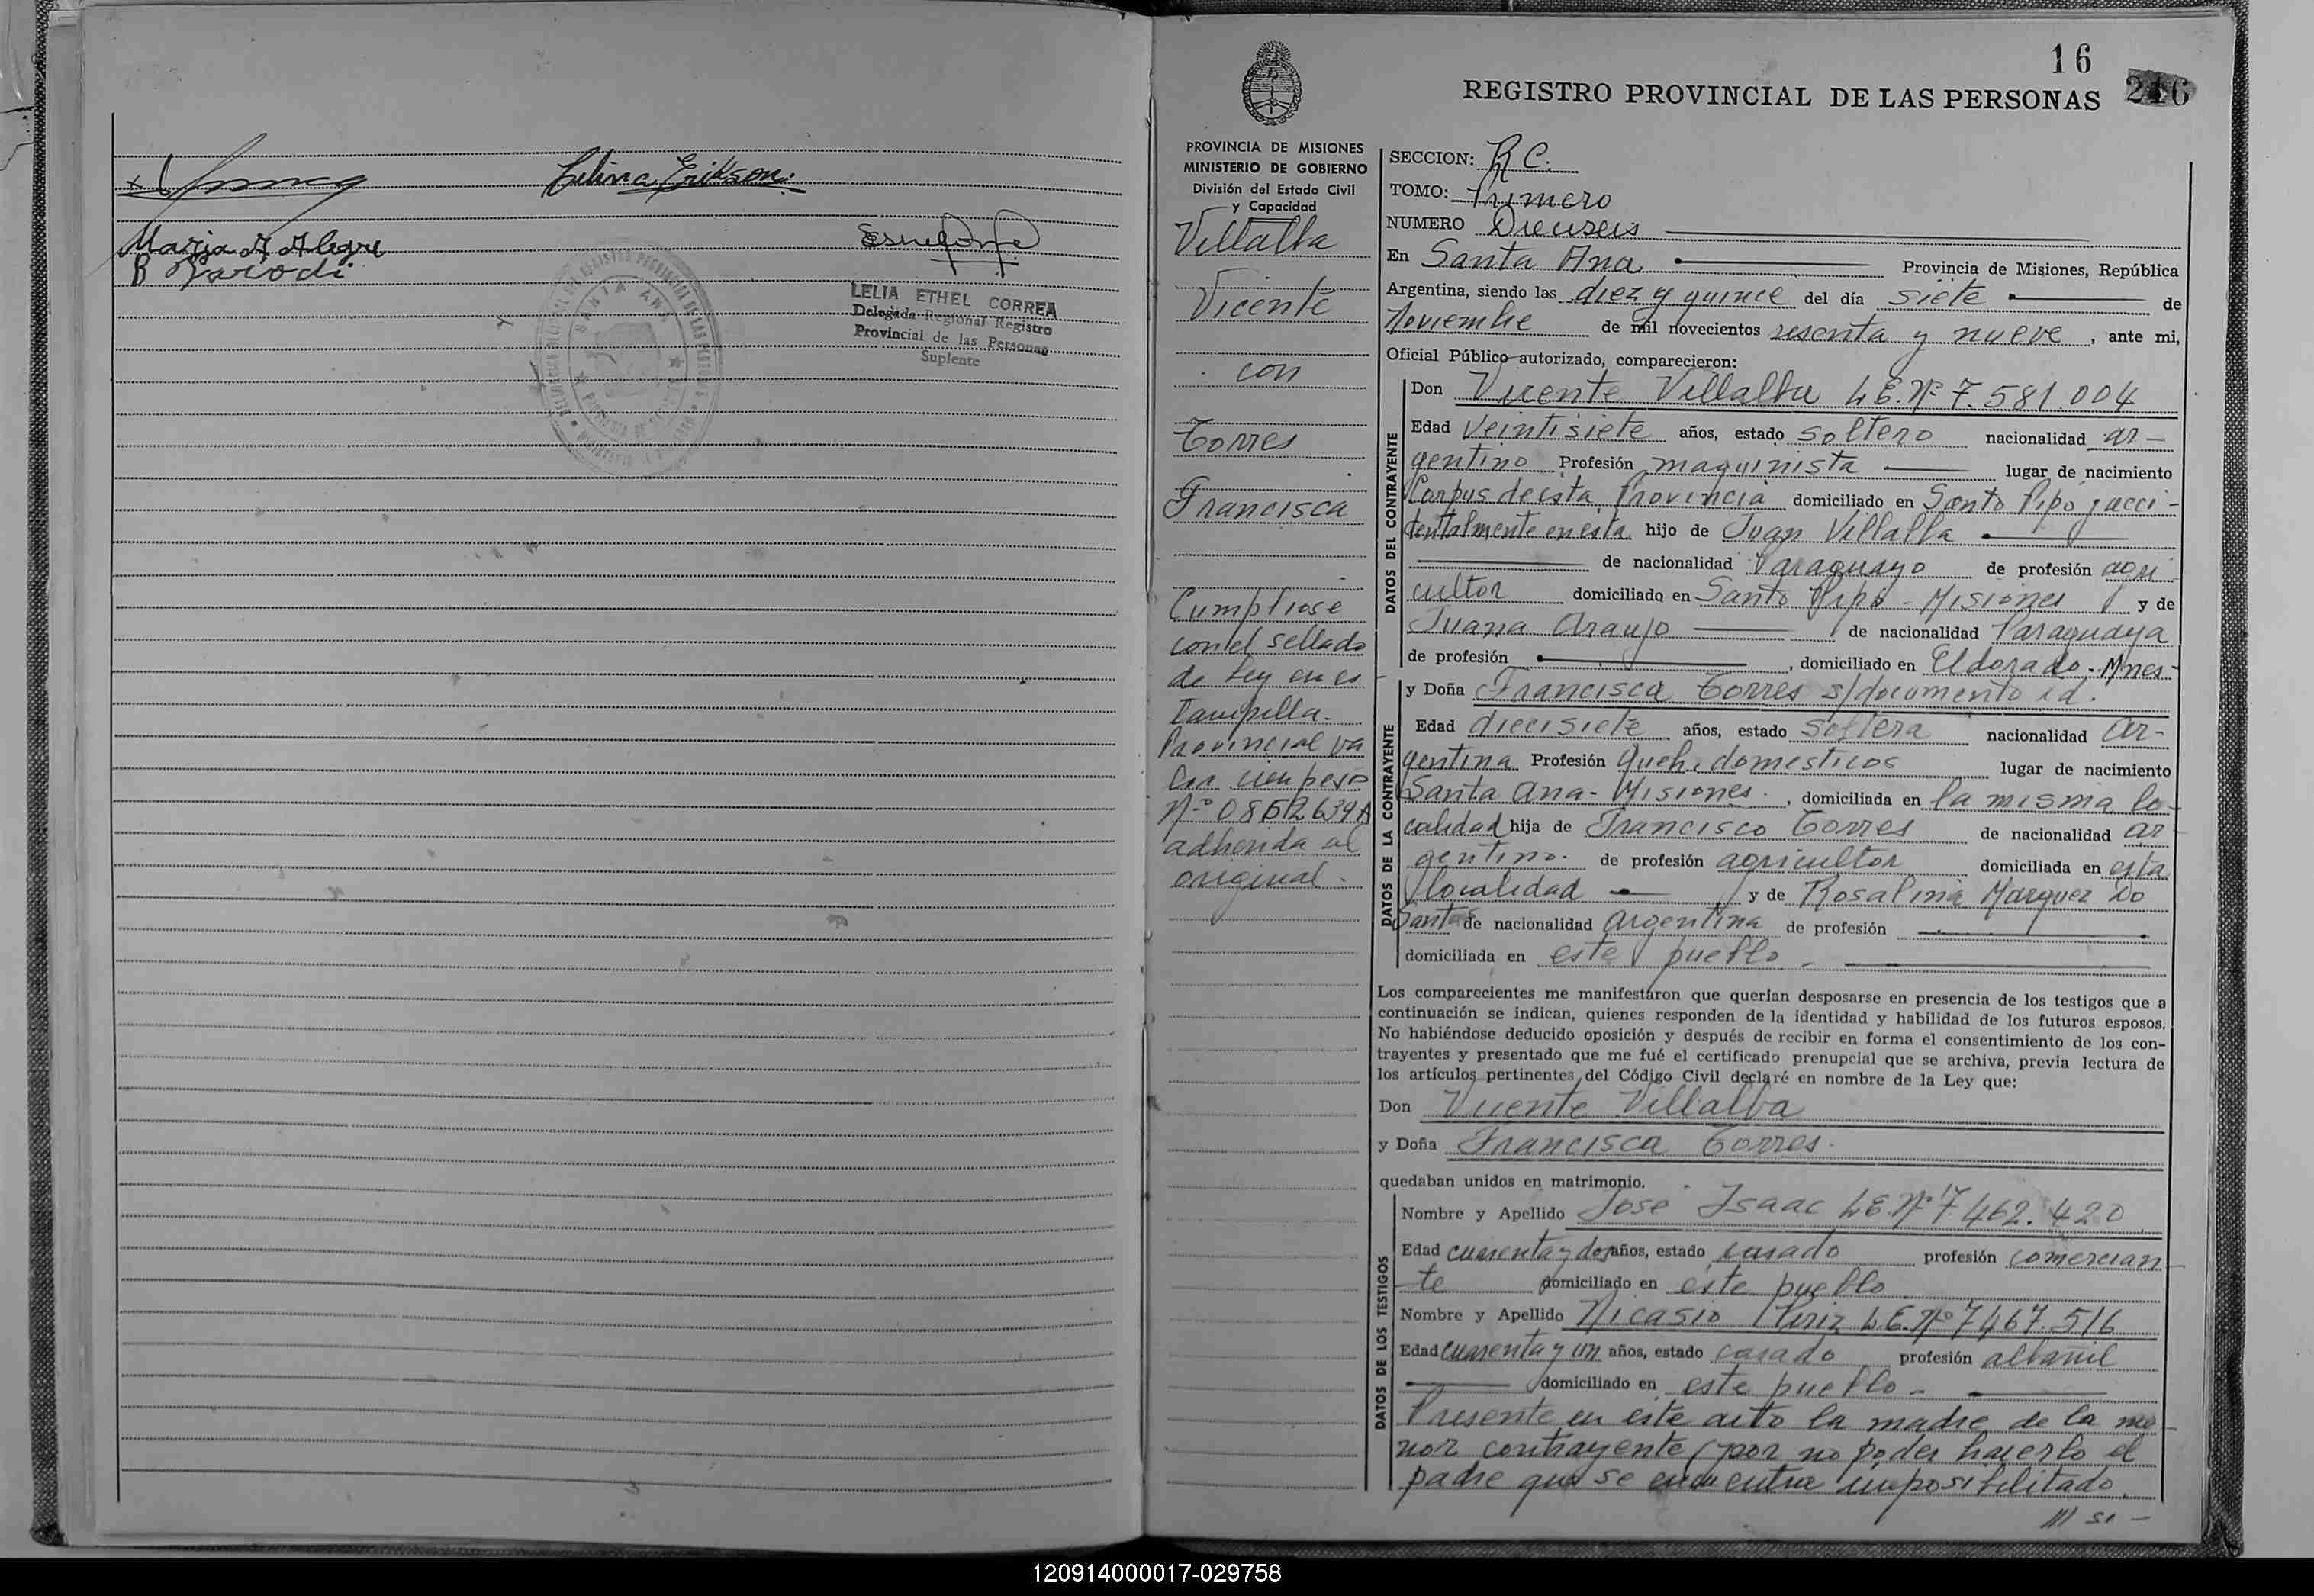 Celina Erikson.
Maria A Alegre
B Parodi
LELIA ETHEL CORREA
Delegada Regional Registro
Provincial de las Personas
Suplente
16
REGISTRO PROVINCIAL DE LAS PERSONAS 216
PROVINCIA DE MISIONES
MINISTERIO DE GOBIERNO
División del Estado Civil
y Capacidad
Villalba
Vicente
con
Torres
Francisca
Cumpliose
con el sellado
de Ley en es
tampilla.
Provincial va
lor cien pesos
adherida al
original.
SECCION: R C.
TOMO: Primero
NUMERO Dieciseis
En Santa Ana Provincia de Misiones, República
Argentina, siendo las diez y quince del día siete de
Noviembre de mil novecientos sesenta y nueve, ante mi,
Oficial Público autorizado, comparecieron:
DATOS DEL CONTRAYENTE
Don Vicente Villalba L.E. Nº 7.581.004
Edad Veintisiete años, estado soltero nacionalidad ar-
gentino Profesión maquinista lugar de nacimiento
Corpus de esta Provincia domiciliado en Santo Pipó y acci-
dentalmente en esta hijo de Juan Villalba
de nacionalidad Paraguayo de profesión agri
cultor domiciliado en Santo Pipó - Misiones y de
Juana Araujo de nacionalidad Paraguaya
de profesión , domiciliado en Eldorado. Mnes-
DATOS DE LA CONTRAYENTE
y Doña Francisca Torres s/documento id.
Edad diecisiete años, estado soltera nacionalidad ar-
gentina Profesión Queh. domesticos lugar de nacimiento
Santa Ana - Misiones. , domiciliada en la misma lo-
calidad hija de Francisco Torres de nacionalidad ar
gentino. de profesión agricultor domiciliada en esta
localidad y de Rosalina Marquez Do
Santos de nacionalidad argentina de profesión
domiciliada en este pueblo.
Los comparecientes me manifestaron que querían desposarse en presencia de los testigos que a
continuación se indican, quienes responden de la identidad y habilidad de los futuros esposos.
No habiéndose deducido oposición y después de recibir en forma el consentimiento de los con-
trayentes y presentado que me fué el certificado prenupcial que se archiva, previa lectura de
los artículos pertinentes del Código Civil declaré en nombre de la Ley que:
Don Vicente Villalba
y Doña Francisca Torres.
quedaban unidos en matrimonio.
DATOS DE LOS TESTIGOS
Nombre y Apellido José Isaac L.E. Nº 7.462.420
Edad cuarenta y dos años, estado casado profesión comercian
te domiciliado en este pueblo
Nombre y Apellido Nicasio Piriz L.E. Nº 7.467.516
Edad cuarenta y un años, estado casado profesión albañil
domiciliado en este pueblo -
Presente en este acto la madre de la me
nor contrayente (por no poder hacerlo el
padre que se encuentra imposibilitado.
120914000017-029758